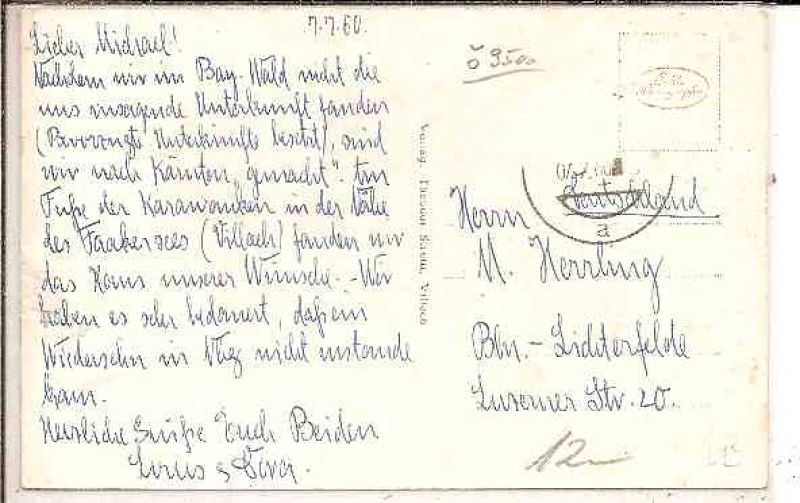 7.7.60.
Lieber Michael!
Nachdem wir im Bay. Wald nicht die
uns zusagende Unterkunft fanden
(Bevorzugte Unterkünfte besetzt), sind
wir nach Kärnten „gemacht". Am
Fuße der Karawanken in der Nähe
des Faakersees (Villach) fanden wir
das Haus unserer Wünsche. - Wir
haben es sehr bedauert, daß ein
Wiedersehn in nicht zustande
kam.
Herzliche Grüße Euch Beiden
&
Verlag
ö 95oo
Deutschland
a
Herrn
M. Herrling
Bln. - Lichterfelde
Luzerner Str. 20.
12